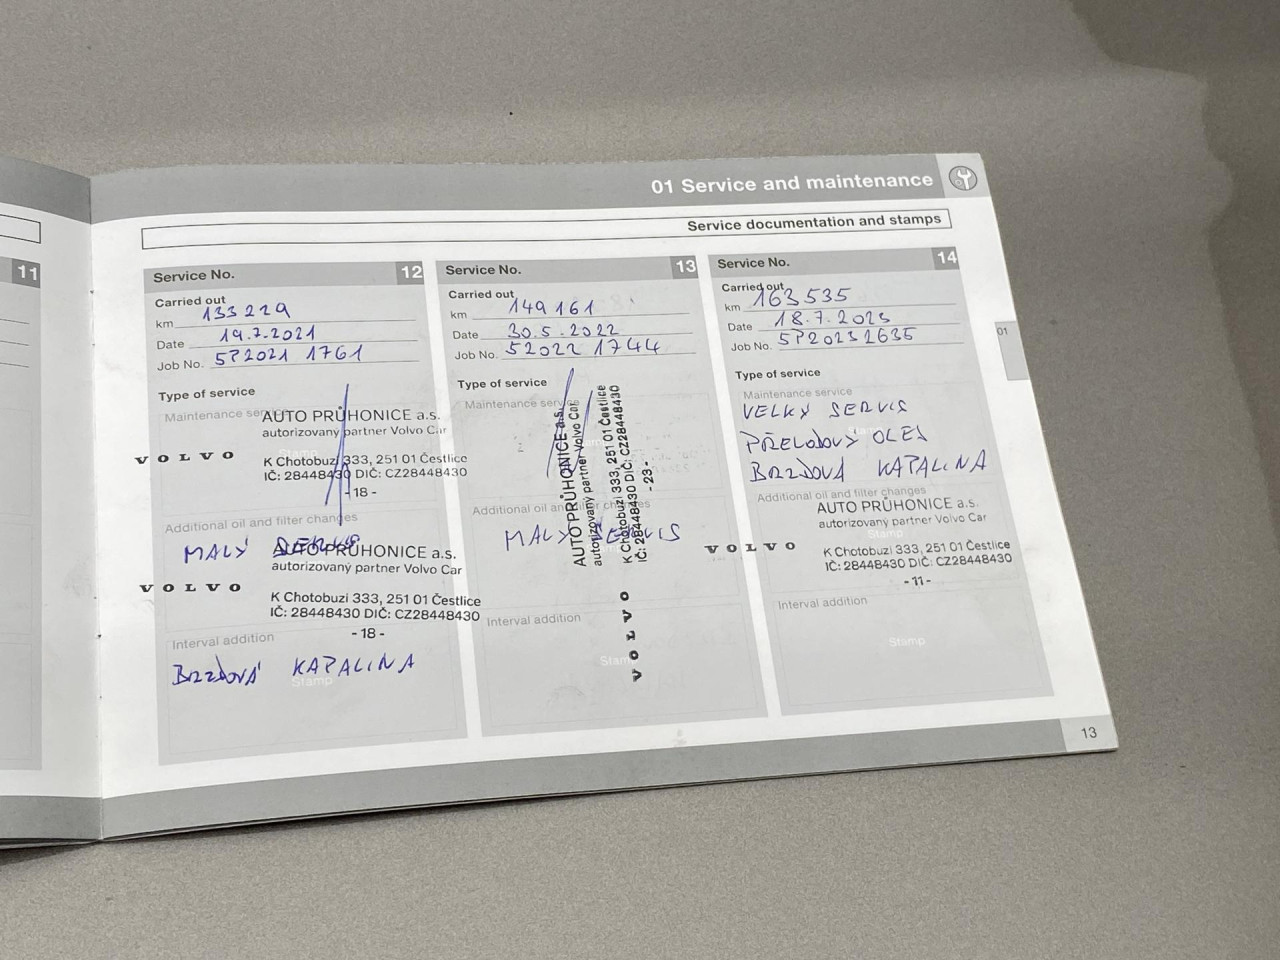 01 Service and maintenance
Service documentation and stamps
11
Service No. 12
Carried out
km 133 229
Date 19.7.2021
Job No. 5P2021 1761
Type of service
Maintenance service
AUTO PRŮHONICE a.s.
autorizovaný partner Volvo Car
VOLVO
K Chotobuzi 333, 251 01 Čestlice
IČ: 28448430 DIČ: CZ28448430
- 18 -
Additional oil and filter changes
MALÝ SERVIS
AUTO PRŮHONICE a.s.
autorizovaný partner Volvo Car
VOLVO
K Chotobuzi 333, 251 01 Čestlice
IČ: 28448430 DIČ: CZ28448430
- 18 -
Interval addition
BRZDOVÁ KAPALINA
Stamp
Service No. 13
Carried out
km 149 161
Date 30.5.2022
Job No. 52022 1744
Type of service
Maintenance service
Additional oil and filter changes
MALÝ SERVIS
AUTO PRŮHONICE a.s.
autorizovaný partner Volvo Car
K Chotobuzi 333, 251 01 Čestlice
IČ: 28448430 DIČ: CZ28448430
- 23 -
VOLVO
Interval addition
Stamp
Service No. 14
Carried out
km 163 535
Date 18.7.2023
Job No. 5P20232635
Type of service
Maintenance service
VELKÝ SERVIS
PŘEVODOVÝ OLEJ
BRZDOVÁ KAPALINA
Additional oil and filter changes
AUTO PRŮHONICE a.s.
autorizovaný partner Volvo Car
VOLVO
K Chotobuzi 333, 251 01 Čestlice
IČ: 28448430 DIČ: CZ28448430
- 11 -
Interval addition
Stamp
01
13